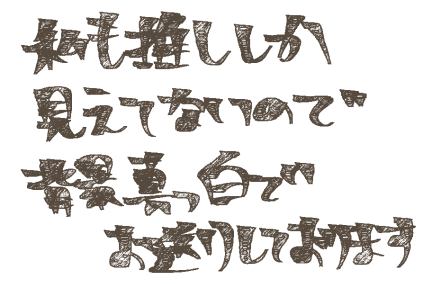 私も推ししか
見えてないので
背景真っ白で
お送りしております